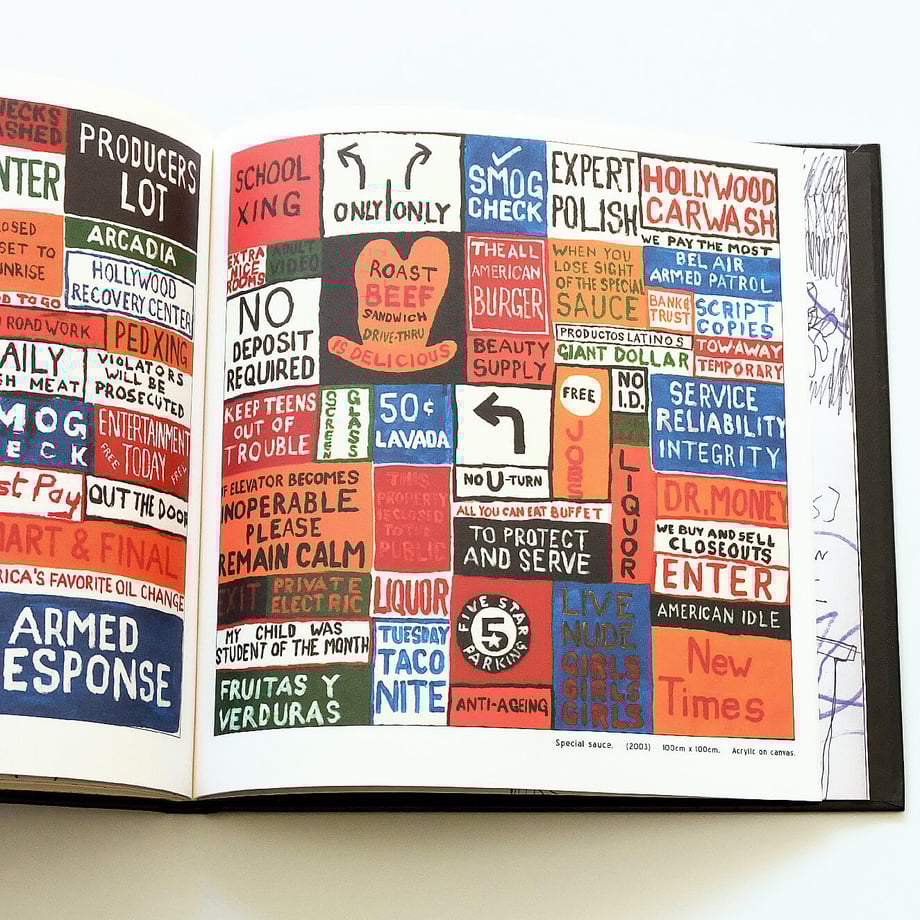 PRODUCERS
LOT
ARCADIA
HOLLYWOOD
RECOVERY CENTER
SET TO
TO GO
ROAD WORK
PED XING
MEAT
VIOLATORS
WILL BE
PROSECUTED
ENTERTAINMENT
TODAY
FREE
FREE
Pay
OUT THE DOOR
& FINAL
FAVORITE OIL CHANGE
ARMED
SCHOOL
XING
ONLY ONLY
SMOG
CHECK
EXPERT
POLISH
HOLLYWOOD
CARWASH
EXTRA
NICE
ROOMS
ADULT
VIDEO
ROAST
BEEF
SANDWICH
DRIVE-THRU
IS DELICIOUS
THE ALL
AMERICAN
BURGER
WHEN YOU
LOSE SIGHT
OF THE SPECIAL
SAUCE
WE PAY THE MOST
BEL AIR
ARMED PATROL
BANK &
TRUST
SCRIPT
COPIES
NO
DEPOSIT
REQUIRED
BEAUTY
SUPPLY
PRODUCTOS LATINOS
GIANT DOLLAR
TOW-AWAY
TEMPORARY
KEEP TEENS
OUT OF
TROUBLE
SCREEN
GLASS
50¢
LAVADA
NO U-TURN
FREE
JOBS
NO
I.D.
SERVICE
RELIABILITY
INTEGRITY
IF ELEVATOR BECOMES
INOPERABLE
PLEASE
REMAIN CALM
THIS
PROPERTY
IS CLOSED
TO THE
PUBLIC
ALL YOU CAN EAT BUFFET
TO PROTECT
AND SERVE
LIQUOR
DR. MONEY
WE BUY AND SELL
CLOSEOUTS
ENTER
EXIT
PRIVATE
ELECTRIC
LIQUOR
FIVE STAR
5
PARKING
LIVE
NUDE
GIRLS
GIRLS
GIRLS
AMERICAN IDLE
MY CHILD WAS
STUDENT OF THE MONTH
TUESDAY
TACO
NITE
New
Times
FRUITAS Y
VERDURAS
ANTI-AGEING
Special sauce. (2003) 100cm x 100cm. Acrylic on canvas.